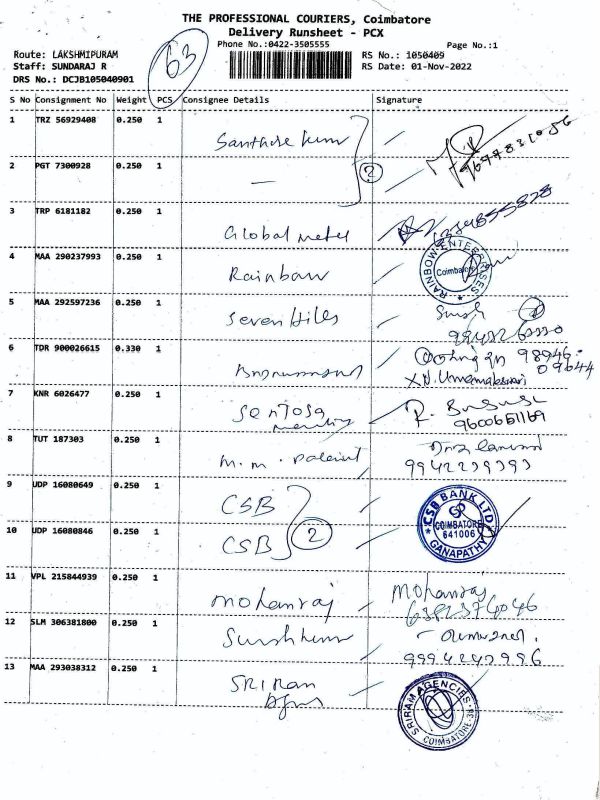 THE PROFESSIONAL COURIERS, Coimbatore
Delivery Runsheet - PCX
Phone No.:0422-3505555
Page No.:1
Route: LAKSHMIPURAM
Staff: SUNDARAJ R
DRS No.: DCJB105040901
63
RS No.: 1050409
RS Date: 01-Nov-2022
S No Consignment No Weight PCS Consignee Details Signature
1 TRZ 56929408 0.250 1
2 PGT 7300928 0.250 1 — 2
3 TRP 6181182 0.250 1 Global
4 MAA 290237993 0.250 1 Rainbow RAINBOW ENTERPRISES Coimbatore
5 MAA 292597236 0.250 1 Seven Hills
6 TDR 900026615 0.330 1 98946-
09644
X.N. Umamaheswari
7 KNR 6026477 0.250 1 Sentosa
9600651169
8 TUT 187303 0.250 1 M.M.
9942239393
9 UDP 16080649 0.250 1 CSB CSB BANK LTD COIMBATORE 641006 GANAPATHY
10 UDP 16080846 0.250 1 CSB 2
11 VPL 215844939 0.250 1 Mohanraj Mohanraj
6382374046
12 SLM 306381800 0.250 1
9994242996
13 MAA 293038312 0.250 1 SRIRAM SRIRAM AGENCIES COIMBATORE